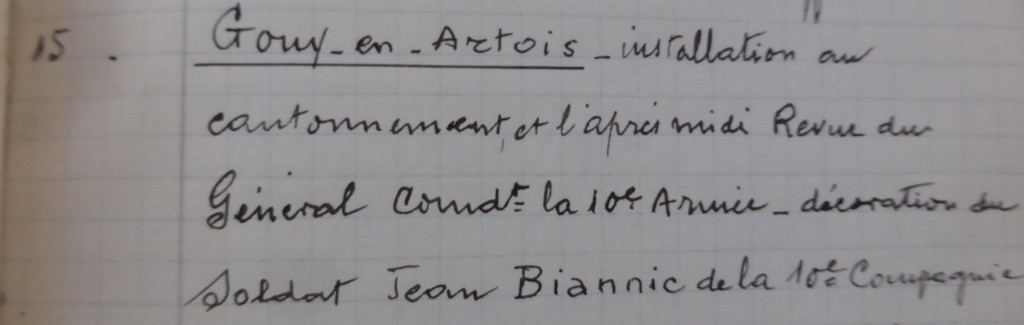 15. Gouy-en-Artois - installation au
cantonnement, et l'après midi Revue du
Général Comdt la 10e Armée - décoration du
Soldat Jean Biannic de la 10e Compagnie